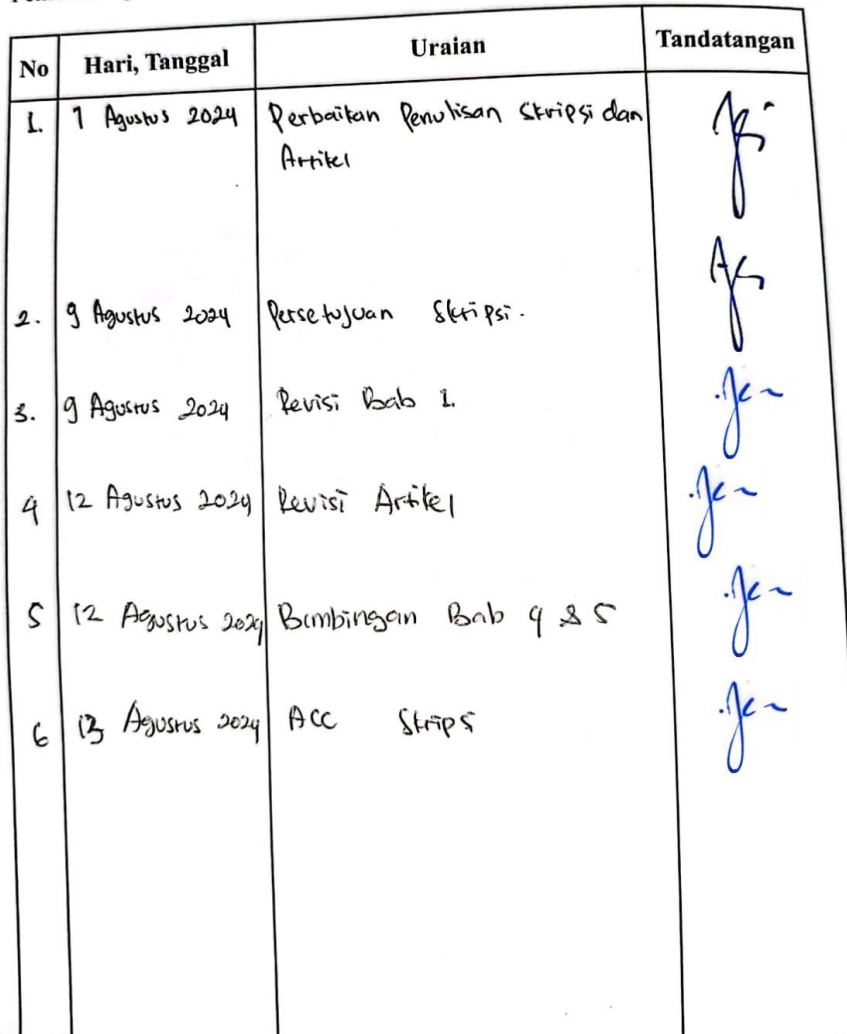 No Hari, Tanggal Uraian Tandatangan
1. 7 Agustus 2024 Perbaikan Penulisan Skripsi dan
Artikel
2. 9 Agustus 2024 Persetujuan Skripsi.
3. 9 Agustus 2024 Revisi Bab 1.
4 12 Agustus 2024 Revisi Artikel
5 12 Agustus 2024 Bimbingan Bab 4 & 5
6 13 Agustus 2024 ACC Skripsi